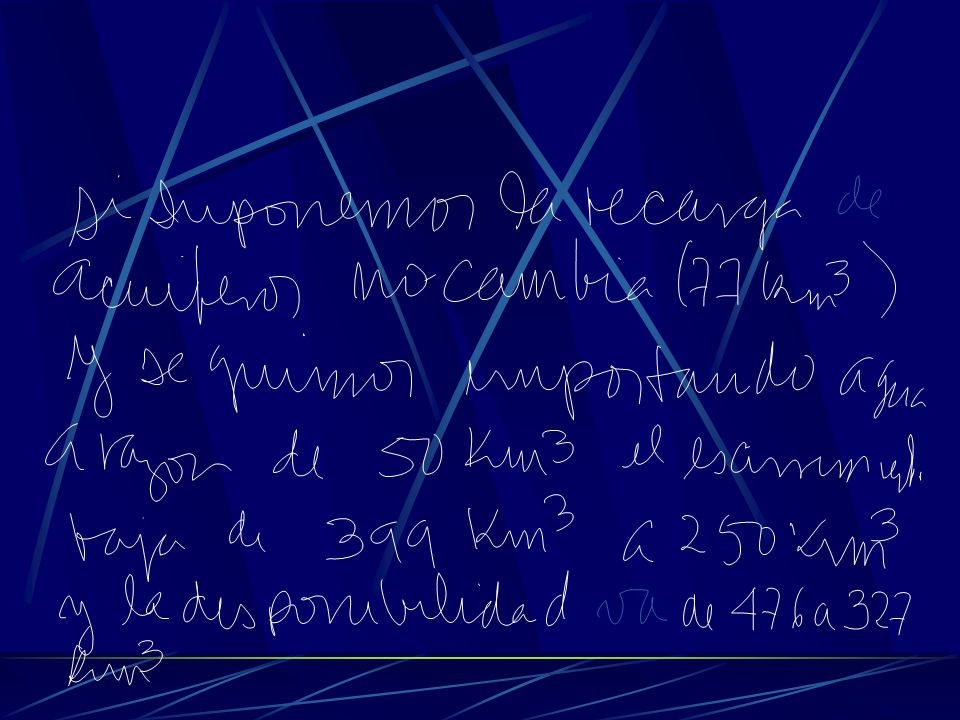 si suponemos la recarga de
acuiferos no cambia (77 km³)
y seguimos importando agua
a razon de 50 Km³ el escurrimiento
baja de 399 Km³ a 250 Km³
y la disponibilidad va de 476 a 327
km³